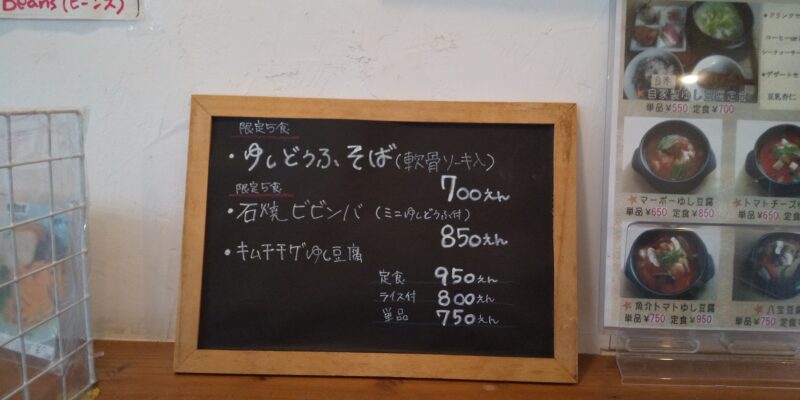 Beans(ビーンズ)
限定5食
・ゆしどうふそば(軟骨ソーキ入)
700えん
限定5食
・石焼ビビンバ(ミニゆしどうふ付)
850えん
・キムチチゲゆし豆腐
定食 950えん
ライス付 800えん
単品 750えん
★自家製ゆし豆腐定食
単品¥550 定食¥700
★マーボーゆし豆腐
単品¥650 定食¥850
★トマトチーズ
単品¥650
★魚介トマトゆし豆腐
単品¥750 定食¥950
★八宝豆腐
単品¥750 定食
●ドリンクセ
コーヒーor
シークヮーサー
●デザートセ
豆乳杏仁